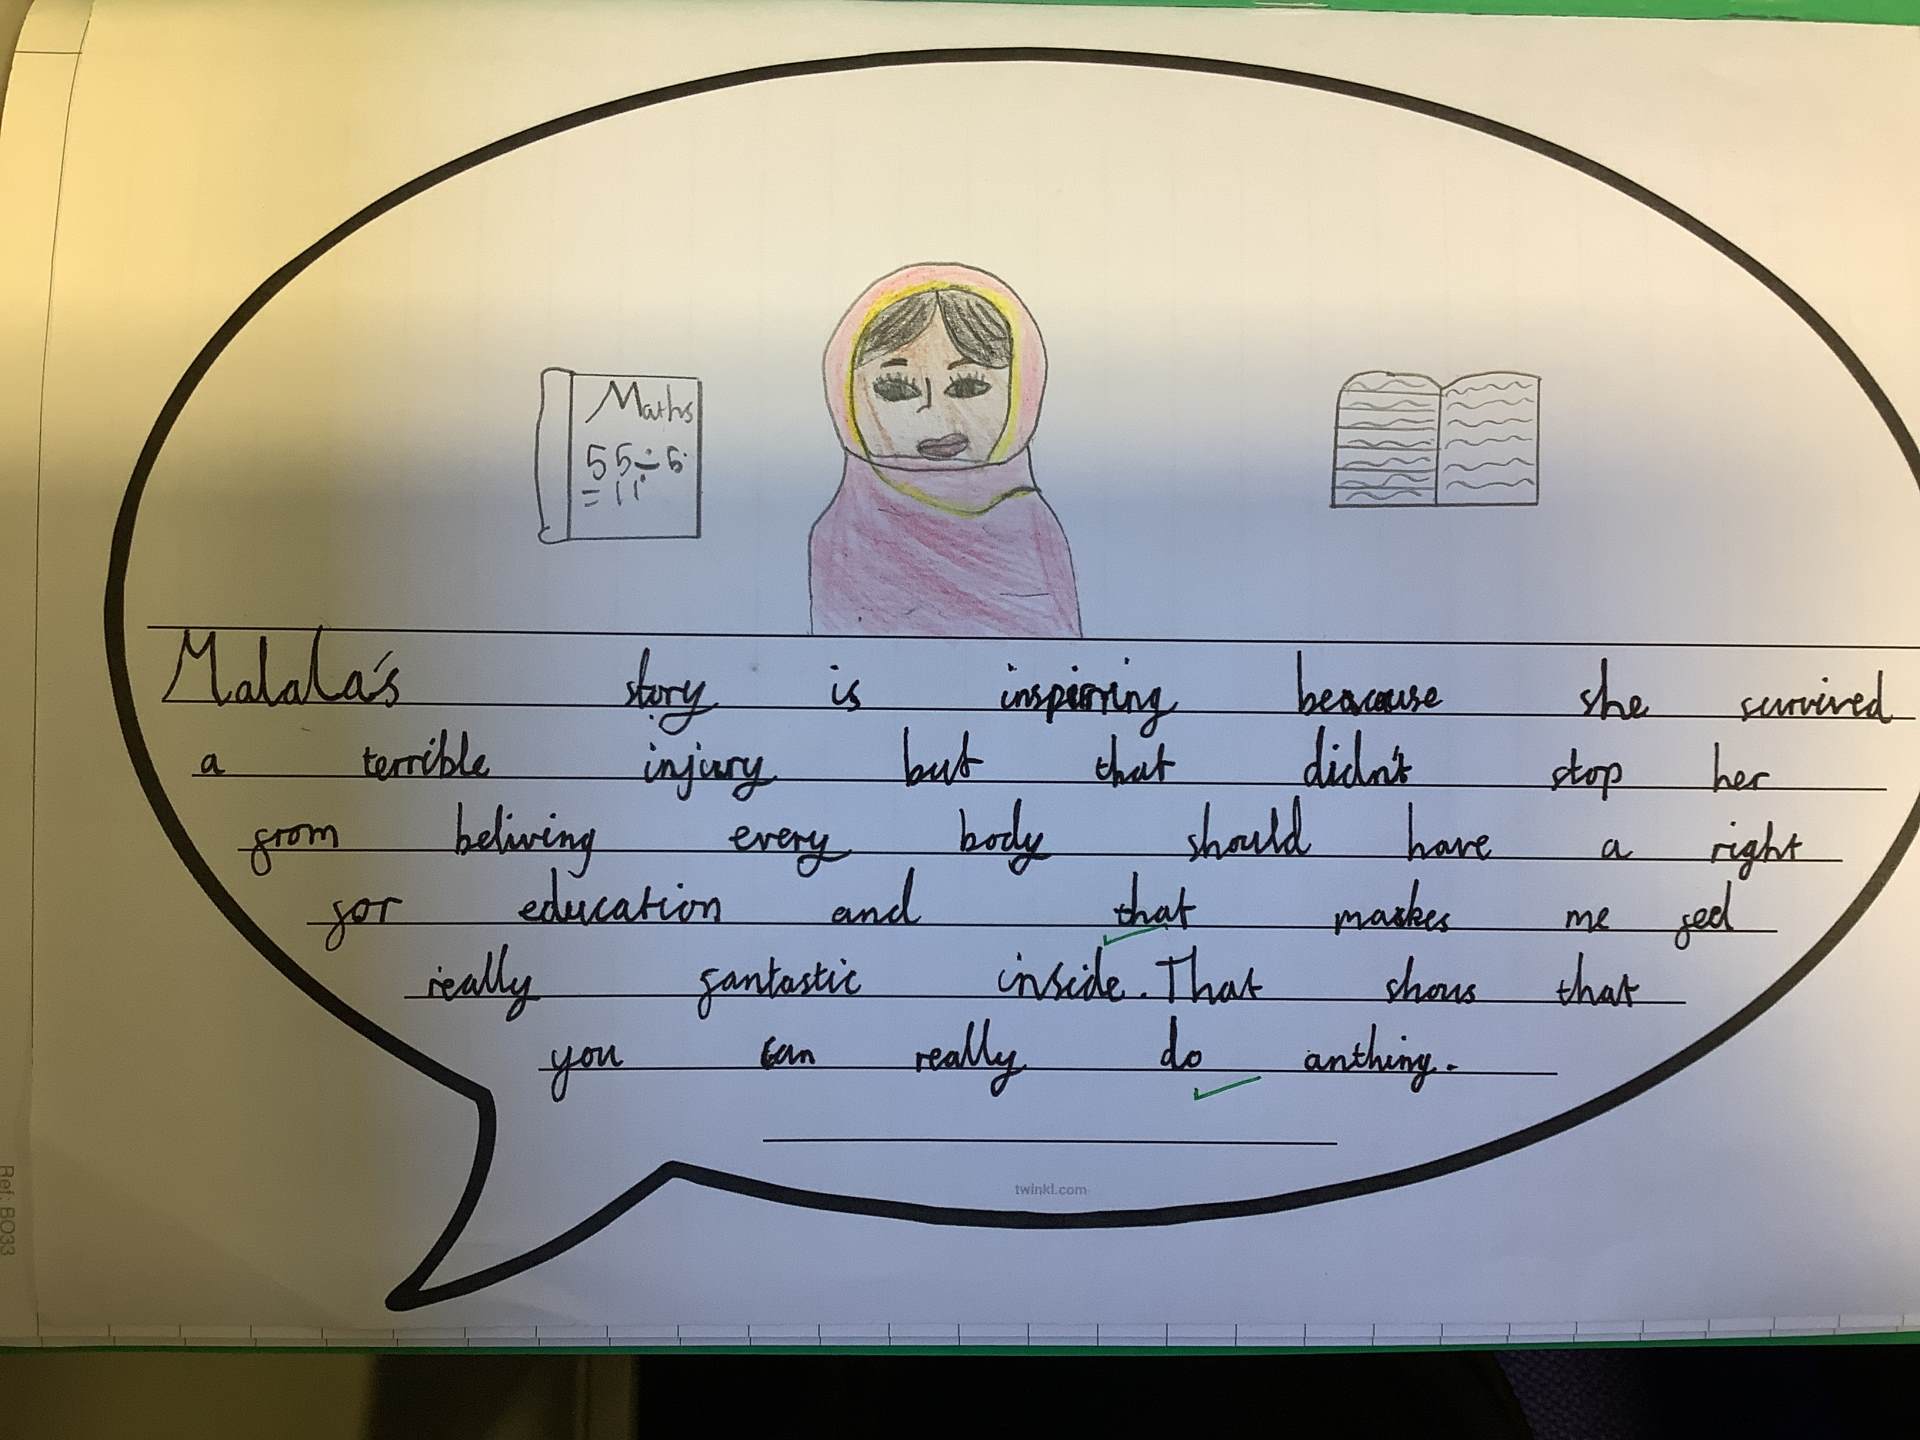 Maths
55÷5
=11
Malala's story is inspiring because she survived
a terrible injury but that didn't stop her
from beliving every body should have a right
for education and that makes me feel
really fantastic inside. That shows that
you can really do anthing.
twinkl.com
Ref: BO33